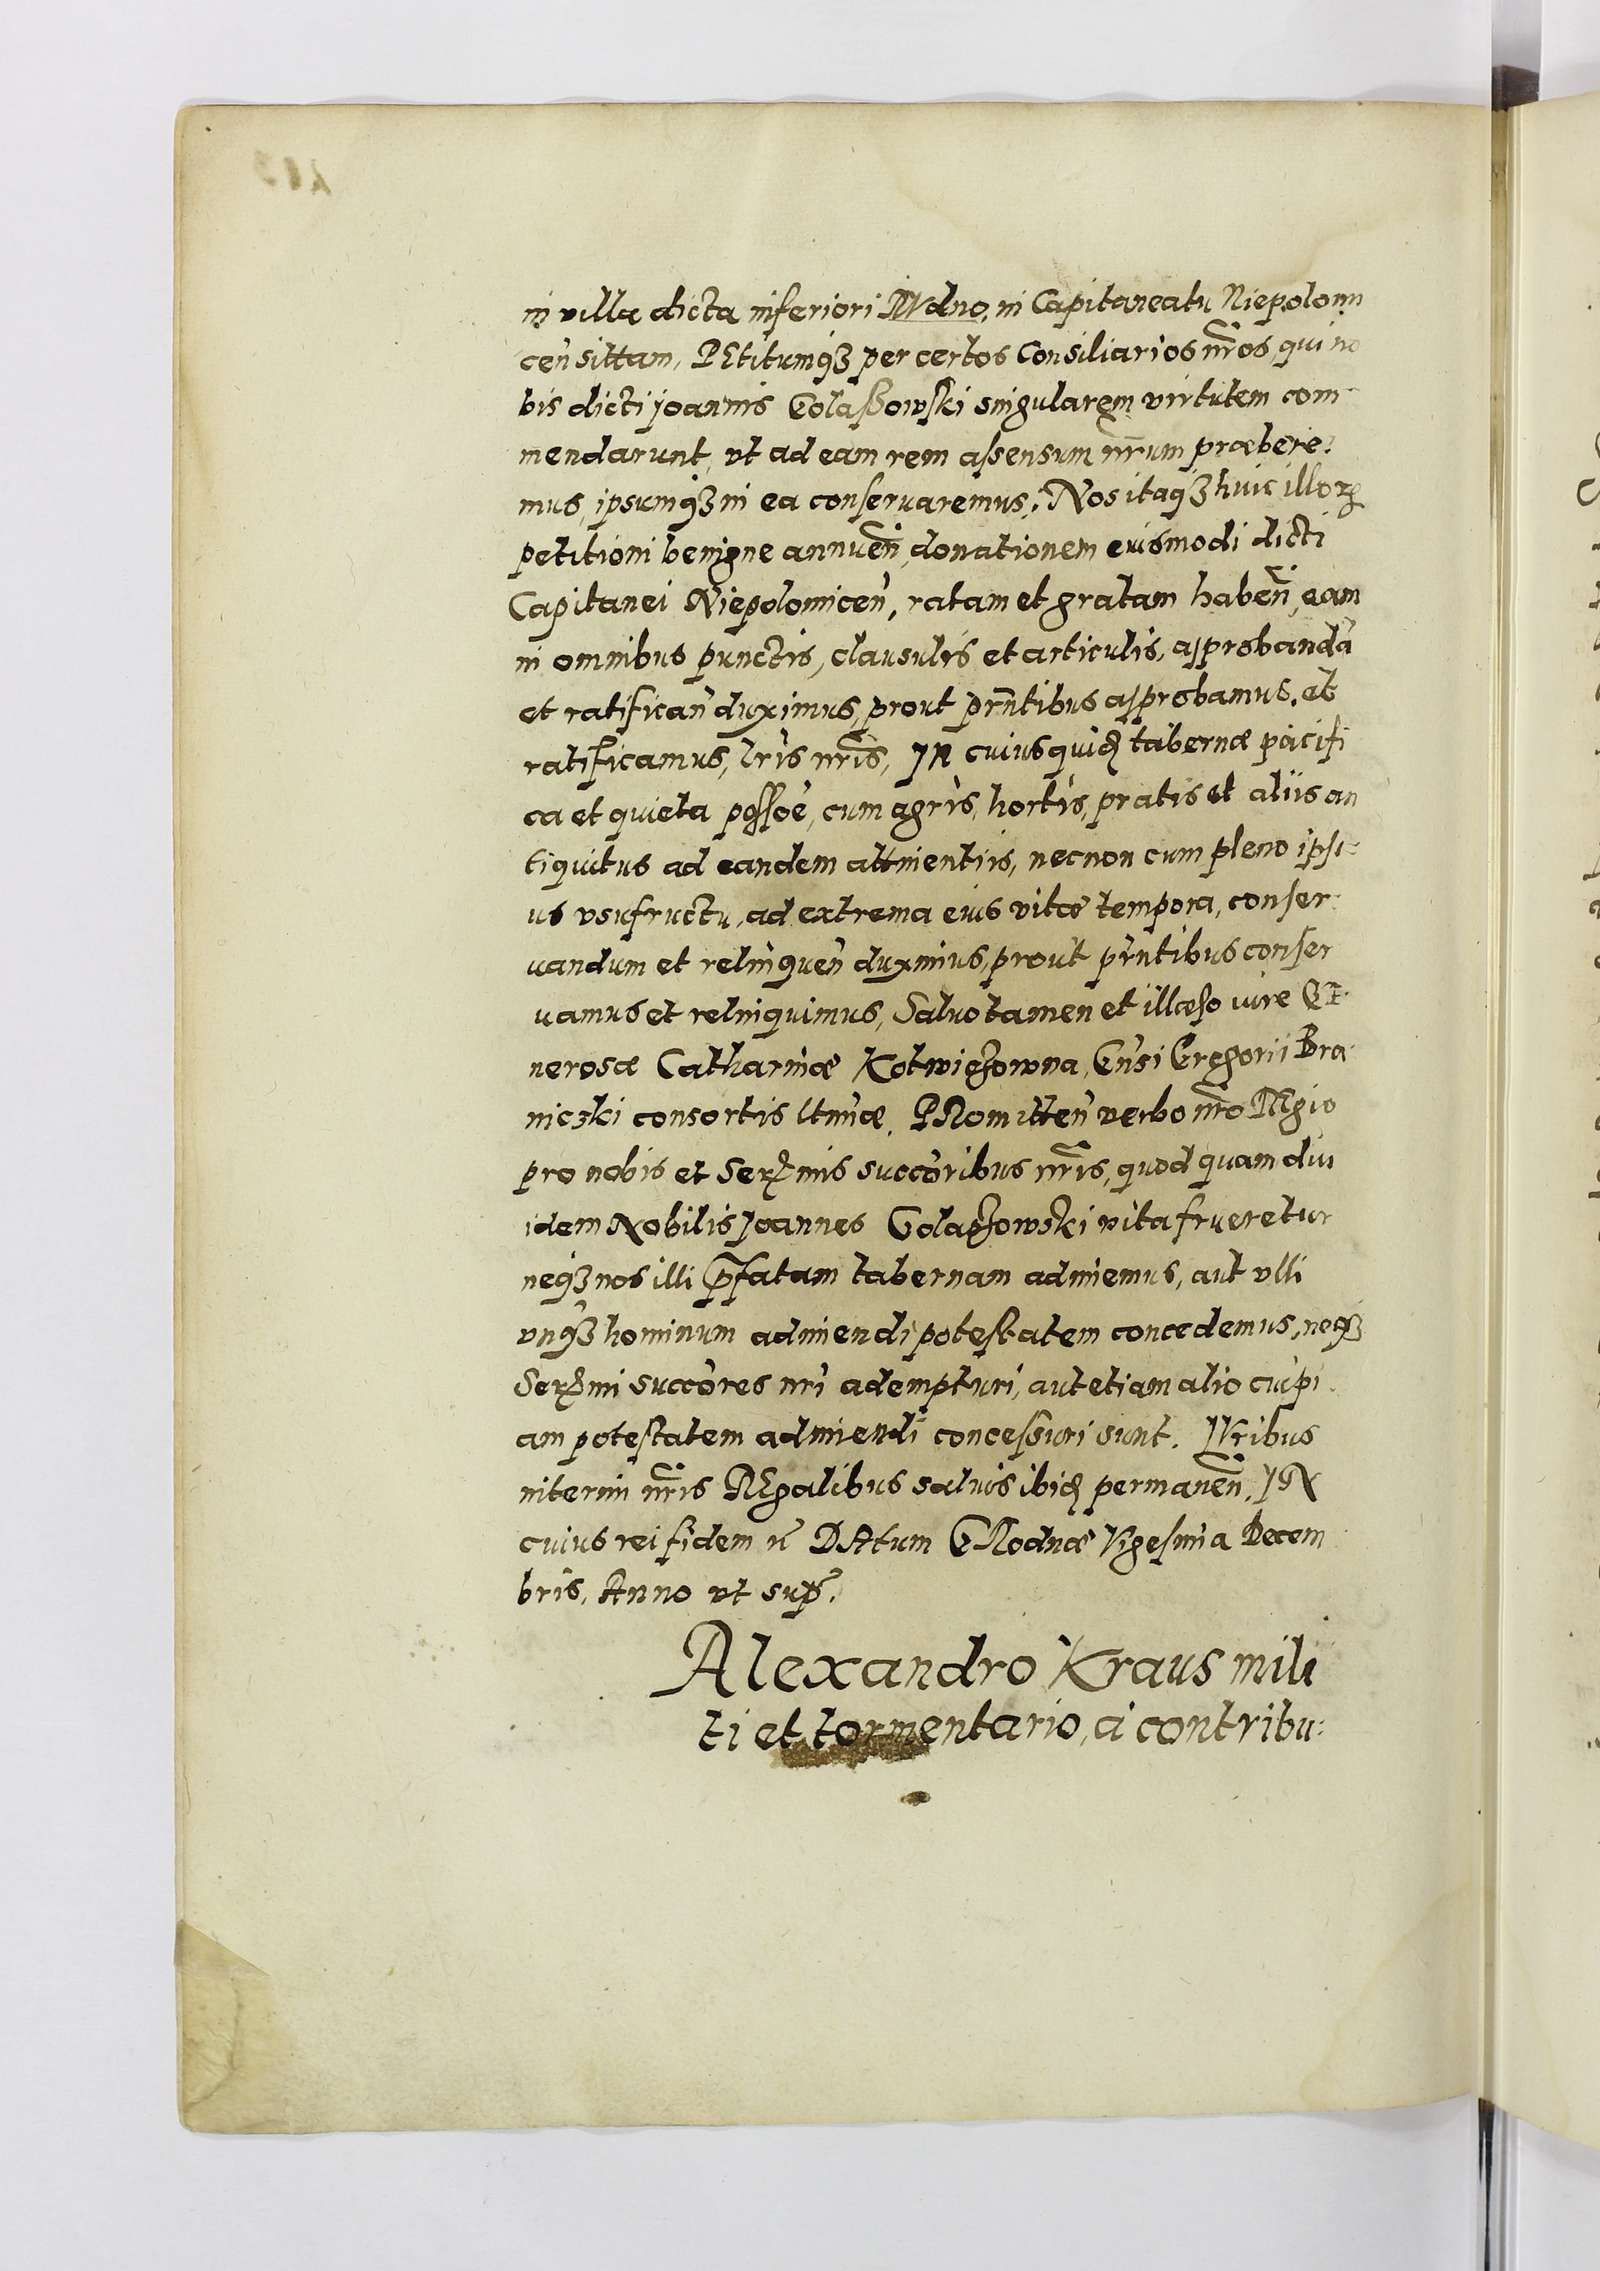 in villa dicta inferiori RVdno, in Capitaneatu Niepolomi
ceñ sittam, PEtitumqȝ per certos Consiliarios nr̃os, qui no
bis dicti Joannis Golaßowski singularem virtutem com
mendarunt, vt ad eam rem assensum nr̃um præbere-
mus, ipsumqȝ in ea conseruaremus: Nos itaqȝ huic illoꝝ
petitioni benigne annueñ, donationem eiusmodi dicti
Capitanei Niepolomiceñ, ratam et gratam habeñ, eam
in omnibus punctis, clausulis et articulis, approbandã
et ratificañ duximus, prout pr̃ntibus approbamus, et
ratificamus, l̃ris nr̃is, IN cuius quidẽ tabernæ pacifi
ca et quieta possõe, cum agris, hortis, pratis et aliis an
tiquitus ad eandem attinentiis, necnon cum pleno ipsi-
us vsufructu, ad extrema eius vitæ tempora, conser-
uandum et relinqueñ duximus, prout pr̃ntibus conser
uamus et relinquimus, Saluo tamen et illæso iure GE-
nerosæ Catharinæ Kotwiczowna, Gñsi Gregorii Bra-
niczki consortis l̃timæ. PRomitteñ verbo nr̃o REgio
pro nobis et Serꝫmis succõribus nr̃is, quod quam diu
idem Nobilis Joannes Golaszowski vita frueretur
neqȝ nos illi p̃fatam tabernam adimemus, aut vlli
vnqȝ hominum adimendi potestatem concedemus, neqȝ
Serꝫmi succõres nr̃i adempturi, aut etiam alio cuipi
am potestatem adimendi concessuri sunt. IVribus
interim nr̃is REgalibus saluis ibidẽ permaneñ. IN
cuius rei fidem ꝛc̃ DAtum GRodnæ Vigesima Decem
bris, Anno vt sup̃.
Alexandro Kraus mili
ti et tormentario, à contribu-